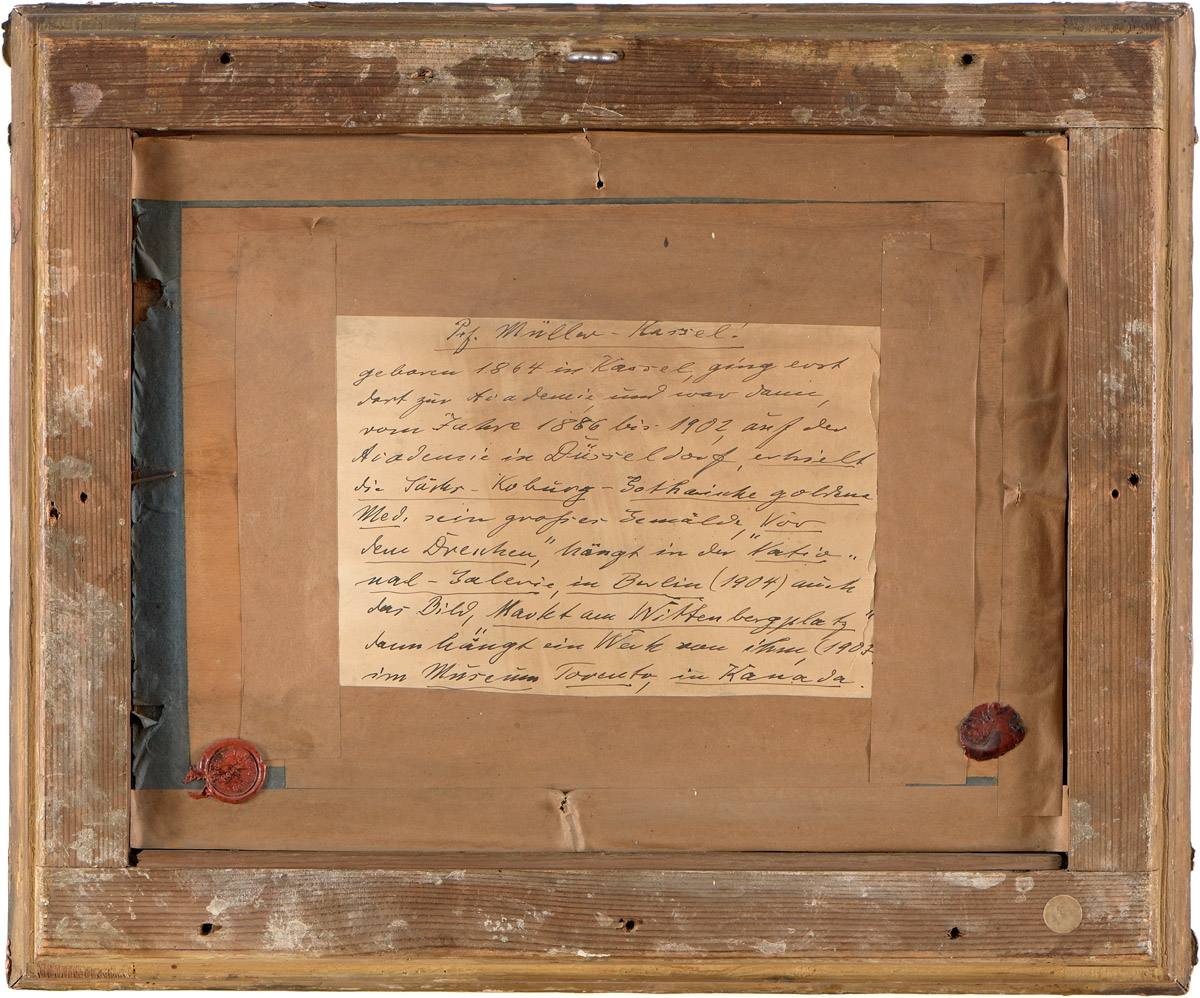 Prf. Müller-Kassel!
geboren 1864 in Kassel, ging erst
dort zur Academie, und war dann,
vom Jahre 1886 bis 1902, auf der
Academie in Düsseldorf, erhielt
die Sächs-Koburg-Gothaische goldene
Med. sein großes Gemälde, "Vor
dem Dreschen", hängt in der "Natio-
nal-Galerie, in Berlin (1904) auch
das Bild, "Markt am Wittenbergplatz"
dann hängt ein Werk von ihm, (1902
im Museum Toronto, in Kanada.